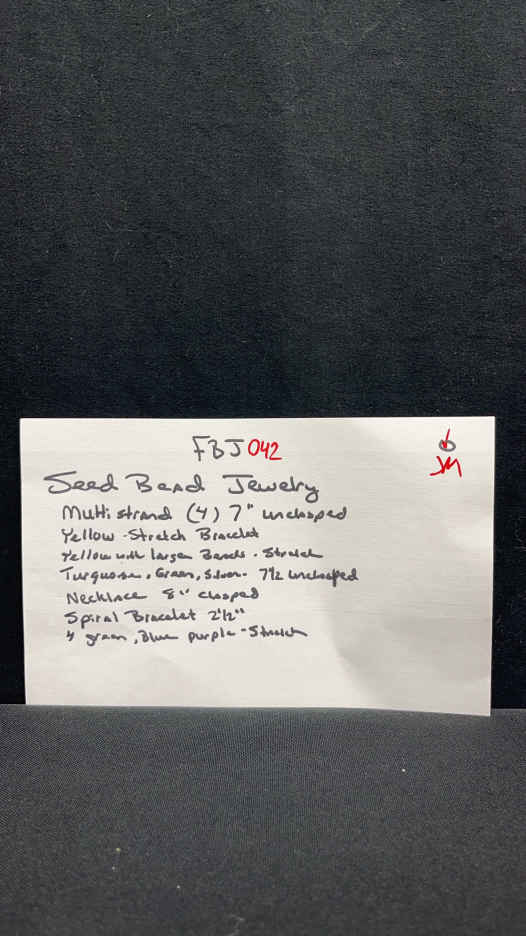 FBJ 042
Seed Bead Jewelry
Multi strand (4) 7" unclasped
Yellow - Stretch Bracelet
Yellow with larger Beads - Stretch
Turquoise, Green, Silver - 7 1/2 unclasped
Necklace 8" clasped
Spiral Bracelet 2 1/2"
4 green, Blue purple - Stretch